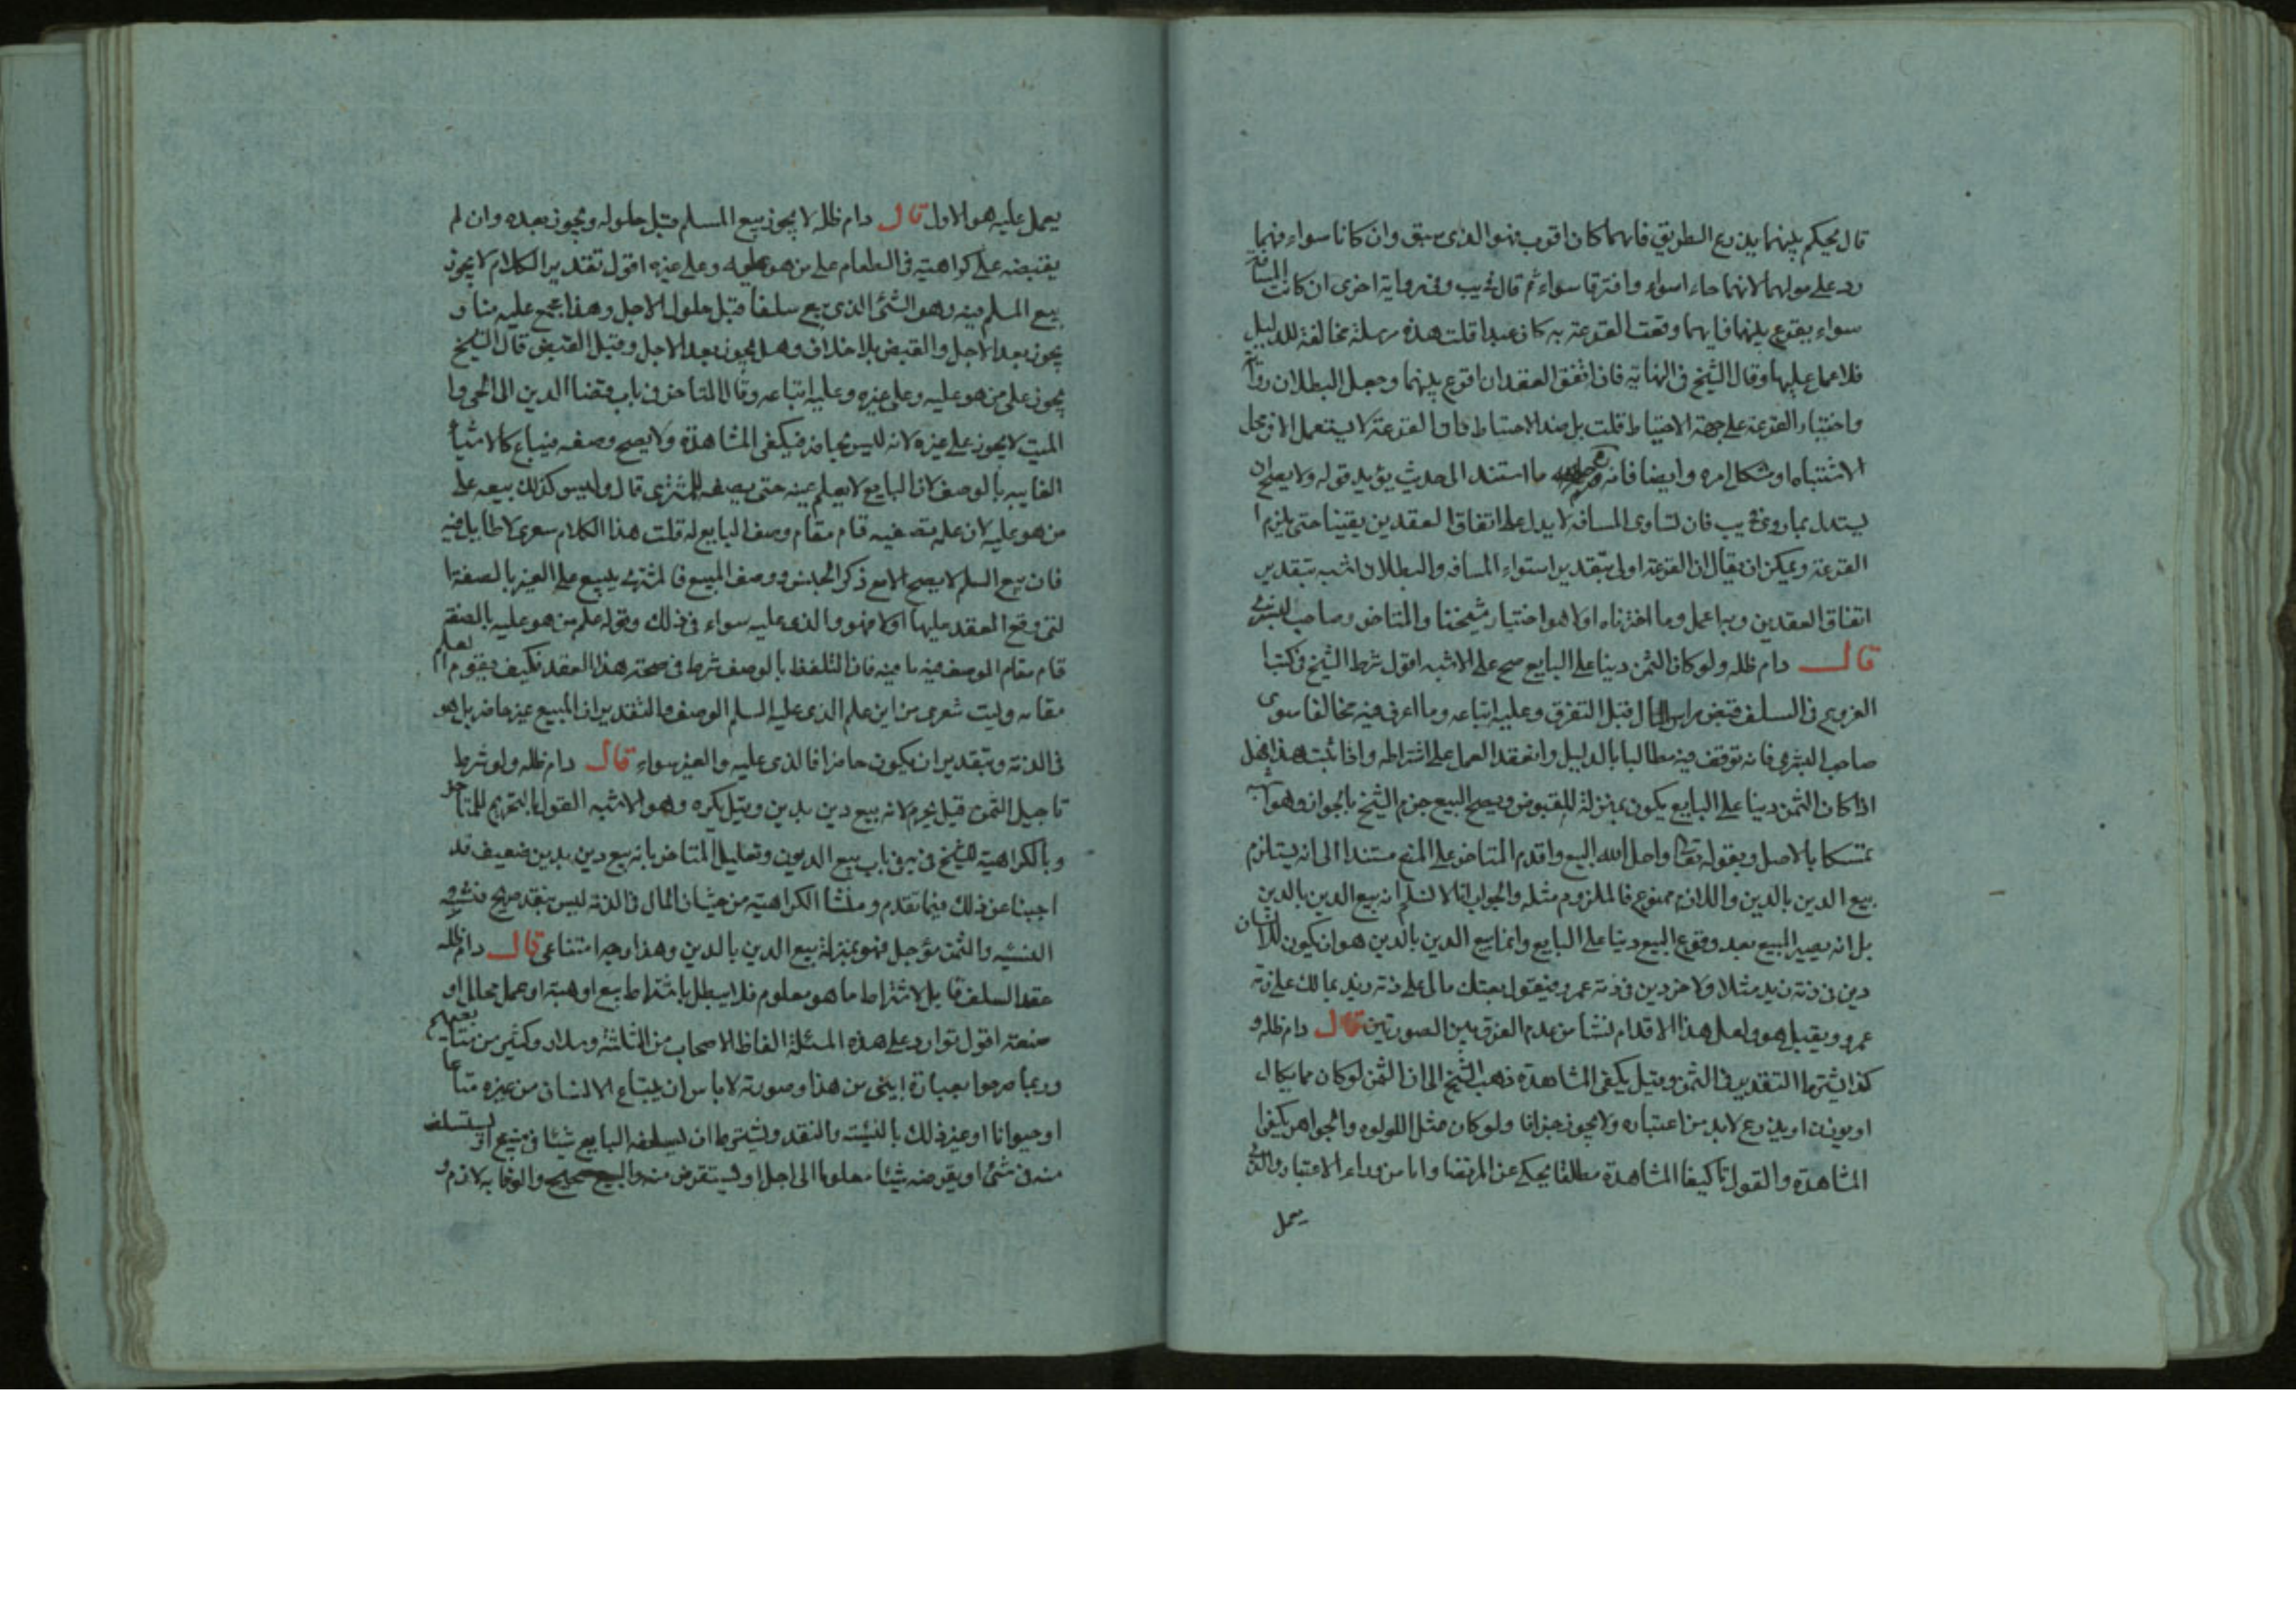 قال يحكم بينهما بذرع الطريق فايهما كان اقرب فهو الذى سبق وان كانا سواء فهما
رد على مولهما لانهما جاءا سواء وافترقا سواء ثم قال فى يب وفى رواية اخرى ان كانت المسافة
سواء يقرع بينهما فايهما وقعت القرعة به كان عبدا قلت هذه مرسلة مخالفة للدليل
فلا عمل عليها وقال الشيخ فى النهاية فان اتفق العقدان اقرع بينهما وجعل البطلان رواية
واختيار القرعة على جهة الاحتياط قلت بل ضد الاحتياط فان القرعة لا يستعمل الا فى محل
الاشتباه او شكل امره وايضا فانه ما استند الى حديث يؤيد قوله ولا يصلح ان
يستدل بما روى فى يب فان تساوى المسافة لا يدل على اتفاق العقدين يقينا حتى يلزم ا
القرعة ويمكن ان يقال ان القرعة اولى بتقدير استواء المسافة والبطلان اشبه بتقدير
اتفاق العقدين وبها عمل وما اخترناه اولا هو اختيار شيخنا والمتاخر وصاحب البشرى
قال دام ظله ولو كان الثمن دينا على البايع صح على الاشبه اقول شرط الشيخ فى كتبا
الفروع فى السلف قبض راس المال قبل التفرق وعليه اتباعه وما اعرف فيه مخالفا سوى
صاحب البشرى فانه توقف فيه مطالبا بالدليل وانعقد العمل على اشتراطه واذا ثبت هذا فهل
اذا كان الثمن دينا على البايع يكون بمنزلة المقبوض ويصح البيع جزم الشيخ بالجواز وهو
تمسكا بالاصل وبقوله تعالى واحل الله البيع واقدم المتاخر على المنع مستندا الى انه يستلزم
بيع الدين بالدين واللازم ممنوع فالملزوم مثله والجواب انا لا نسلم انه بيع الدين بالدين
بل انه يصير المبيع بعد وقوع البيع دينا على البايع وانما بيع الدين بالدين هو ان يكون للانسان
دين فى ذمة زيد مثلا ولاخر دين فى ذمة عمرو فيقول بعتك مالى على ذمة زيد بمالك على ذمة
عمرو ويقبل هو ولعل هذا الاقدام نشا من عدم الفرق بين الصورتين قال دام ظله و
كذا يشترط التقدير فى الثمن وقيل يكفى المشاهدة ذهب الشيخ الى ان الثمن لو كان مما يكال
او يوزن او يذرع لا بد من اعتباره ولا يجوز جزافا ولو كان مثل اللولوء والجواهر يكفى ا
المشاهدة والقول باكتفا المشاهدة مطلقا يحكى عن المرتضا واما من وراء الاعتبار والذى
يعمل
يعمل عليه هو الاول قال دام ظله لا يجوز بيع المسلم قبل حلوله ويجوز بعده وان لم
يقبضه على كراهية فى الطعام على من هو عليه وعلى غيره اقول تقدير الكلام لا يجوز
بيع المسلم فيه وهو الشئ الذى بيع سلفا قبل حلول الاجل وهذا مجمع عليه منا و
يجوز بعد الاجل والقبض بلا خلاف وهل يجوز بعد الاجل وقبل القبض قال الشيخ
يجوز على من هو عليه وعلى غيره وعليه اتباعه وقال المتاخر فى باب قضا الدين الى الحى وا
الميت لا يجوز على غيره لانه ليس بحاضر فيكفى المشاهدة ولا يصح وصفه فيباع كالاشيا
الغايبه بالوصف لان البايع لا يعلم عينه حتى يصفه للمشترى قال وليس كذلك بيعه على
من هو عليه لان علمه بصفته قام مقام وصف البايع له قلت هذا الكلام شعرى لا طايل فيه
فان بيع السلم لا يصح الا مع ذكر الجنس ووصف المبيع فالمشترى يبيع على الغير بالصفة ا
لتى وقع العقد عليها اولا فهو والذى عليه سواء فى ذلك وقوله علم من هو عليه بالصفة
قام مقام الوصف فيه ما فيه فان التلفظ بالوصف شرط فى صحة هذا العقد فكيف يقوم العلم
مقامه وليت شعرى من اين علم الذى عليه السلم الوصف والتقدير ان المبيع غير حاضر بل هو
فى الذمة وبتقدير ان يكون حاضرا فالذى عليه والغير سواء قال دام ظله ولو شرط
تاجيل الثمن قيل يحرم لانه بيع دين بدين وقيل يكره وهو الاشبه القول بالتحريم للمتاخر
وبالكراهية للشيخ فى يه فى باب بيع الديون وتعليل المتاخر بانه بيع دين بدين ضعيف قد
اجبنا عن ذلك فيما تقدم ومنشا الكراهية من حيث ان المال فى الذمة ليس بنقد صريح فنشبه
النسئيه والثمن مؤجل فهو بمنزلة بيع الدين بالدين وهذا وجه امتناعى قال دام ظله
عقد السلف قابل لاشتراط ما هو معلوم فلا يبطل باشتراط بيع او هبة او عمل محلل او
صنعة اقول توارد على هذه المسئلة الفاظ الاصحاب من الثلاثة وسلار وكثير من متابعيهم
وربما صرحوا بعبارة ابين من هذا وصورته لا باس ان يبتاع الانسان من غيره متاعا
او حيوانا او غير ذلك بالنسئة والنقد ويشترط ان يسلفه البايع شيئا فى مبيع او يستسلف
منه فى شئ او يقرضه شيئا معلوما الى اجل او يستقرض منه والبيع صحيح والوفا به لازم و